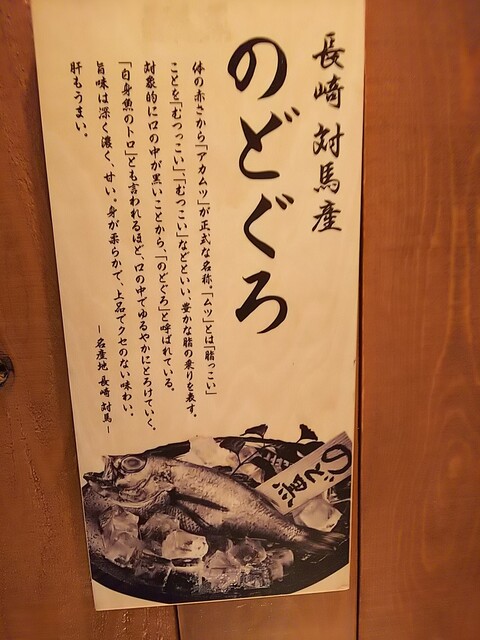 長崎 対馬産
のどぐろ
体の赤さから「アカムツ」が正式な名称。「ムツ」とは「脂っこい」
ことを「むつっこい」、「むつっこい」などといい、豊かな脂の乗りを表す。
対象的に口の中が黒いことから、「のどぐろ」と呼ばれている。
「白身魚のトロ」とも言われるほど、口の中でゆるやかにとろけていく。
旨味は深く濃く、甘い。身が柔らかで、上品でクセのない味わい。
肝もうまい。
―名産地 長崎 対馬―
のど黒